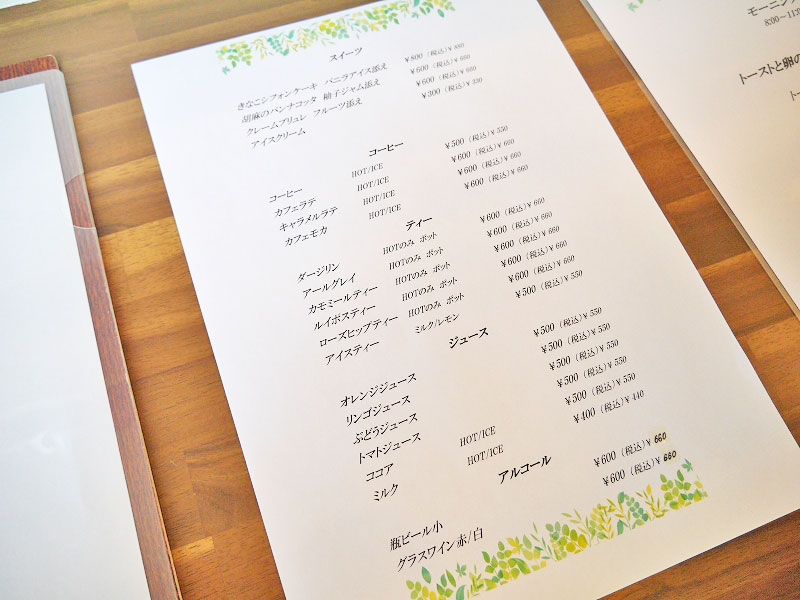 スイーツ
きなこシフォンケーキ バニラアイス添え ¥800（税込）¥880
胡麻のパンナコッタ 柚子ジャム添え ¥600（税込）¥660
クレームブリュレ フルーツ添え ¥600（税込）¥660
アイスクリーム ¥300（税込）¥330
コーヒー
コーヒー HOT/ICE ¥500（税込）¥550
カフェラテ HOT/ICE ¥600（税込）¥660
キャラメルラテ HOT/ICE ¥600（税込）¥660
カフェモカ HOT/ICE ¥600（税込）¥660
ティー
ダージリン HOTのみ ポット ¥600（税込）¥660
アールグレイ HOTのみ ポット ¥600（税込）¥660
カモミールティー HOTのみ ポット ¥600（税込）¥660
ルイボスティー HOTのみ ポット ¥600（税込）¥660
ローズヒップティー HOTのみ ポット ¥600（税込）¥660
アイスティー ミルク/レモン ¥500（税込）¥550
ジュース
オレンジジュース ¥500（税込）¥550
リンゴジュース ¥500（税込）¥550
ぶどうジュース ¥500（税込）¥550
トマトジュース ¥500（税込）¥550
ココア HOT/ICE ¥500（税込）¥550
ミルク HOT/ICE ¥400（税込）¥440
アルコール
瓶ビール小 ¥600（税込）¥660
グラスワイン赤/白 ¥600（税込）¥660
モーニン
8:00～11:3
トーストと卵の